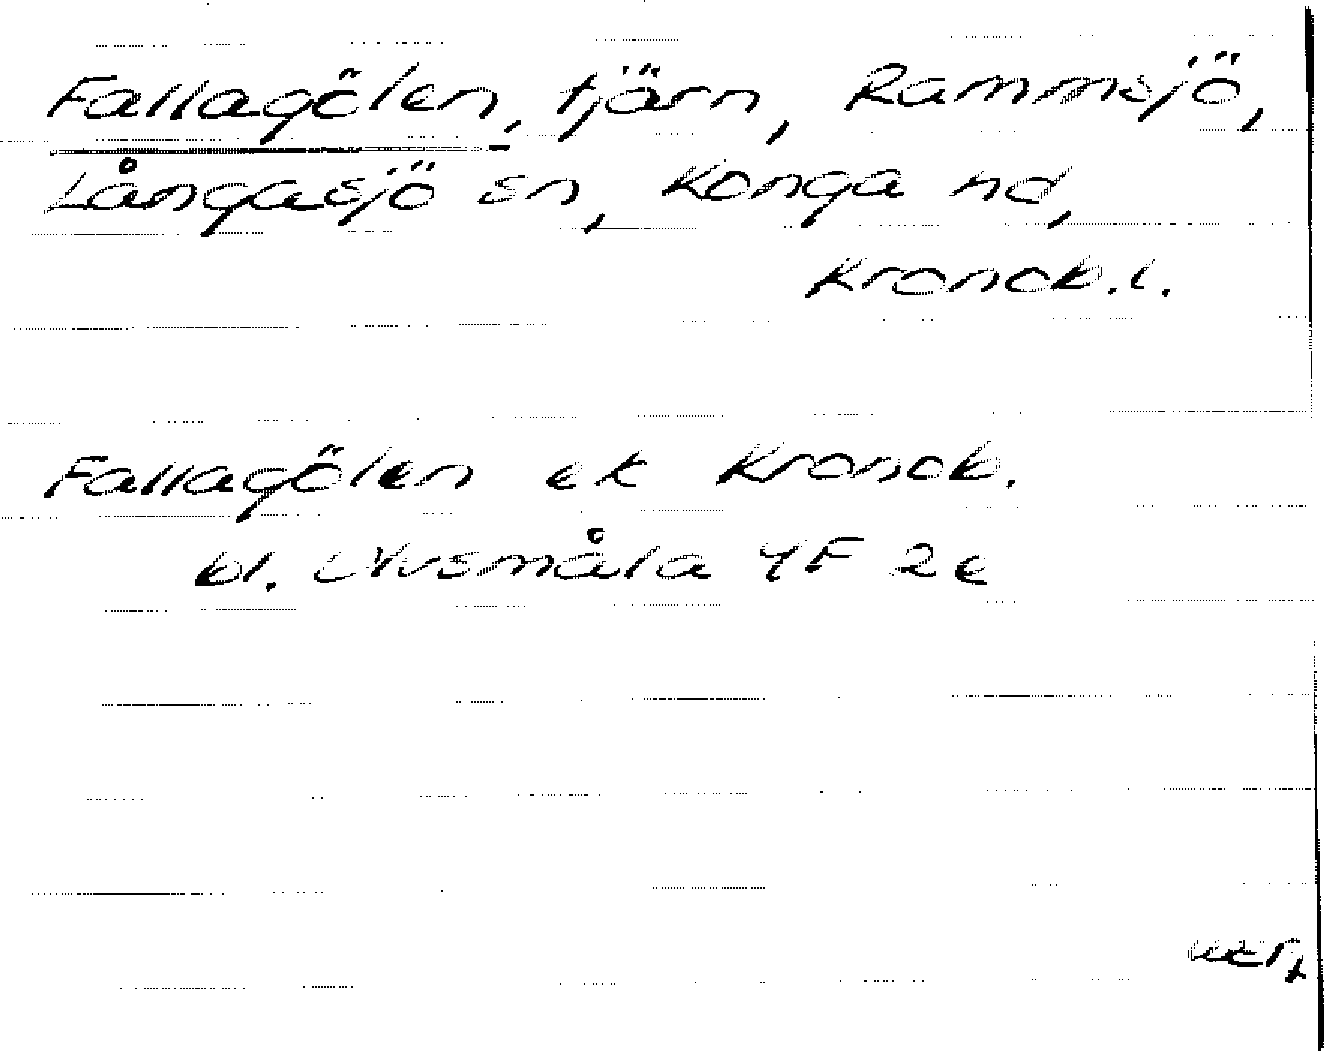 Fallagölen, tjärn, Rammsjö,
Långasjö sn, Konga hd,
Kronob.l.
Fallagölen ek Kronob.
bl. Ulvsmåla 4F 2e